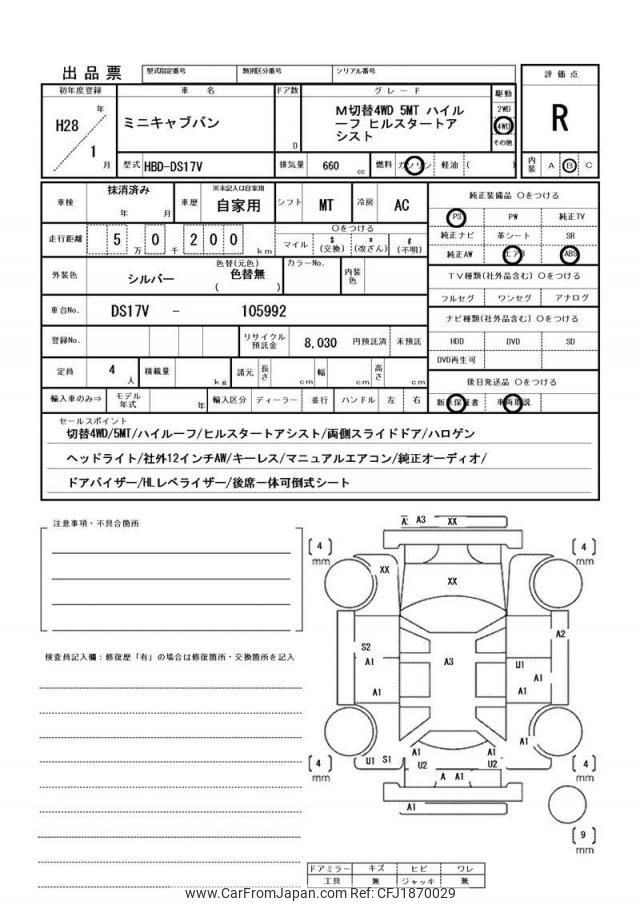 出品票 型式指定番号 類別区分番号 シリアル番号
評価点
初年度登録 車名 ドア数 グレード 駆動
H28 年 1 月
ミニキャブバン
D
M切替4WD 5MT ハイル
ーフ ヒルスタートア
シスト
2WD
4WD
その他
R
型式 HBD-DS17V 排気量 660 cc 燃料 ガソリン 軽油 ( )
内装 A B C
車検 抹消済み 年 月
車歴 ※未記入は自家用 自家用
シフト MT 冷房 AC
純正装備品 ○をつける
PS PW 純正TV
純正ナビ 革シート SR
純正AW エアB ABS
走行距離 5 万 0 千 2 0 0 km
○をつける
マイル $ (交換) * (改ざん) # (不明)
外装色 シルバー 色替(元色) 色替無 ( )
カラーNo. 内装色
TV種類(社外品含む) ○をつける
フルセグ ワンセグ アナログ
車台No. DS17V - 105992
ナビ種類(社外品含む) ○をつける
HDD DVD SD
DVD再生可
登録No. リサイクル預託金 8,030 円預託済 未預託
定員 4 人 積載量 kg 諸元 長さ cm 幅 cm 高さ cm
後日発送品 ○をつける
新車保証書 車両取説
輸入車のみ⇒ モデル年式 年 輸入区分 ディーラー 並行 ハンドル 左 右
セールスポイント
切替4WD/5MT/ハイルーフ/ヒルスタートアシスト/両側スライドドア/ハロゲン
ヘッドライト/社外12インチAW/キーレス/マニュアルエアコン/純正オーディオ/
ドアバイザー/HLレベライザー/後席一体可倒式シート
注意事項・不具合箇所
検査員記入欄:修復歴「有」の場合は修復箇所・交換箇所を記入
A A3 XX
[4] mm [4] mm
XX
XX
A2
S2
A1 A3 U1
A1
A1 A1
A1
U1 S1 A1 A1
U2 U2
[4] mm [4] mm
A A1
A1
[9] mm
ドアミラー キズ ヒビ ワレ
工具 無 ジャッキ 無
www.CarFromJapan.com No: CFJ1870029